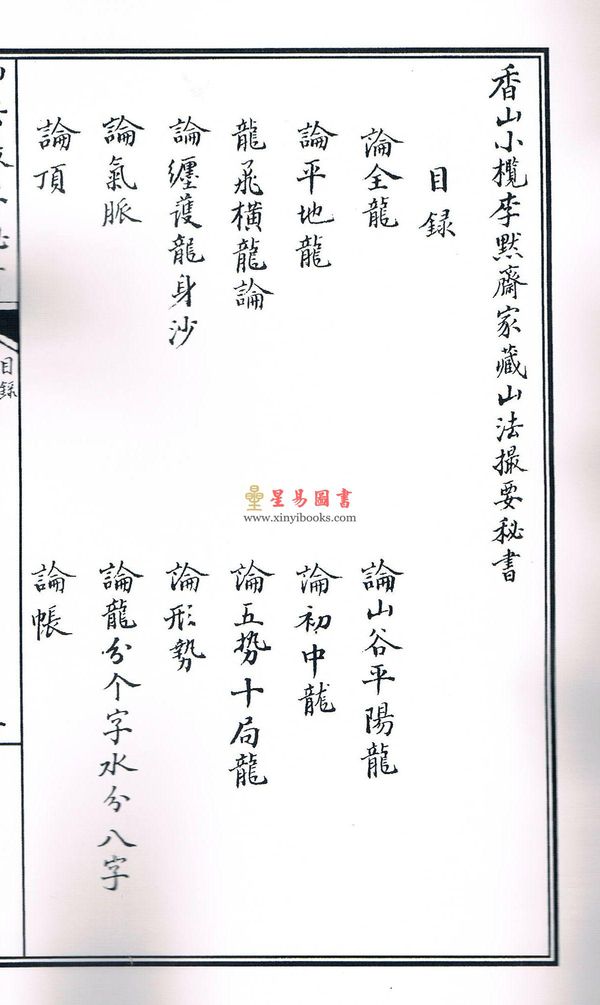 香山小欖李默齋家藏山法撮要秘書
目録
論全龍
論山谷平陽龍
論平地龍
論初中龍
龍飛橫龍論
論五势十局龍
論纏護龍身沙
論形勢
論氣脈
論龍分个字水分八字
論頂
論帳
目録
星易圖書
www.xinyibooks.com